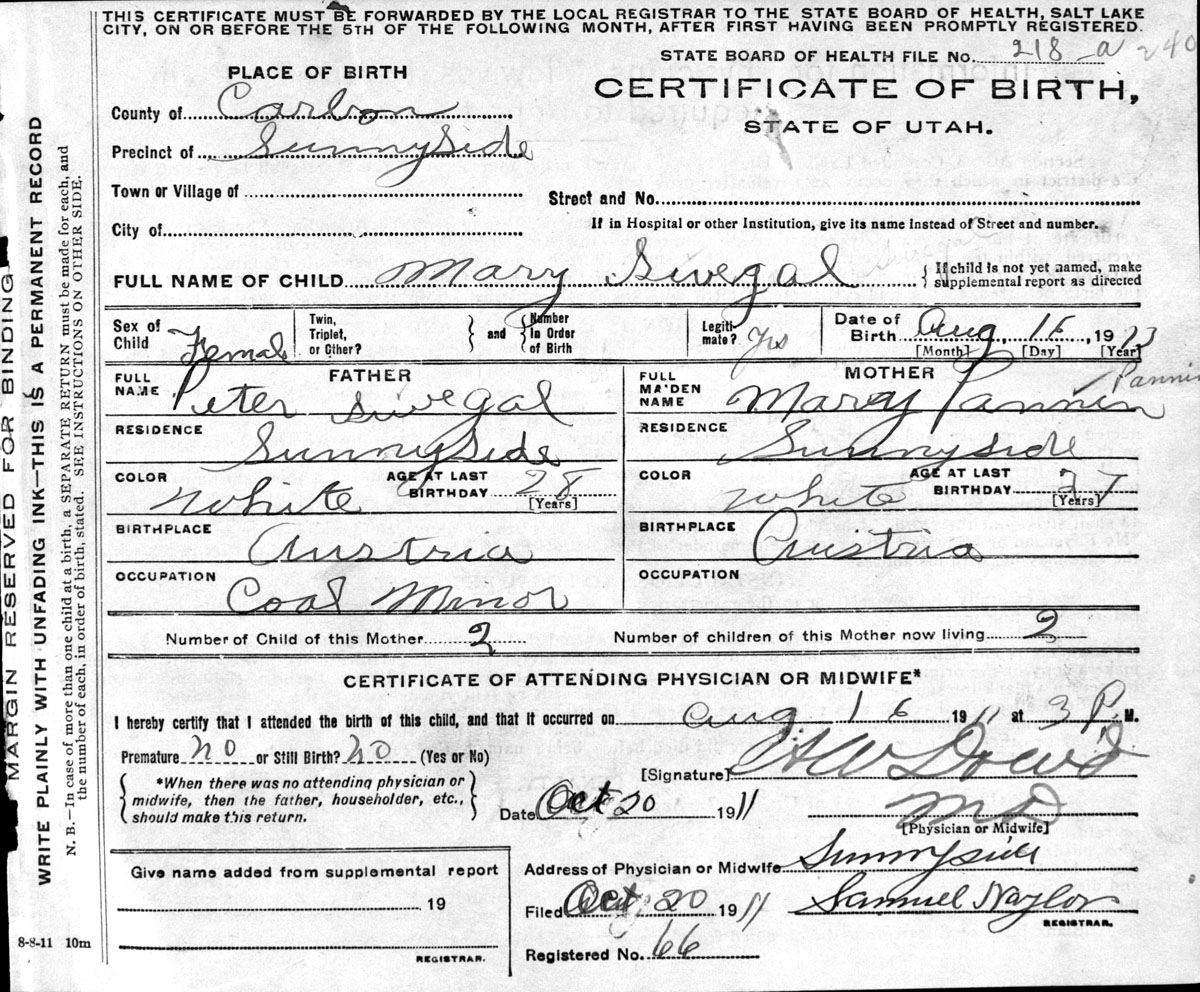 THIS CERTIFICATE MUST BE FORWARDED BY THE LOCAL REGISTRAR TO THE STATE BOARD OF HEALTH, SALT LAKE
CITY, ON OR BEFORE THE 5TH OF THE FOLLOWING MONTH, AFTER FIRST HAVING BEEN PROMPTLY REGISTERED.
STATE BOARD OF HEALTH FILE No. 218-a 240
PLACE OF BIRTH
CERTIFICATE OF BIRTH,
STATE OF UTAH.
County of Carbon
Precinct of Sunnyside
Town or Village of
Street and No.
City of
If in Hospital or other Institution, give its name instead of Street and number.
FULL NAME OF CHILD Mary Sivegal { If child is not yet named, make supplemental report as directed
Sex of Child Female Twin, Triplet, or Other? } and { Number In Order of Birth Legiti-mate? Yes Date of Birth Aug 16, 19
[Month] [Day] [Year]
FATHER
MOTHER
FULL NAME Peter Sivegal
FULL MAIDEN NAME Mary Pannin Pannin
RESIDENCE Sunnyside
RESIDENCE Sunnyside
COLOR White AGE AT LAST BIRTHDAY 28 [Years]
COLOR White AGE AT LAST BIRTHDAY 27 [Years]
BIRTHPLACE Austria
BIRTHPLACE Austria
OCCUPATION Coal Minor
OCCUPATION
Number of Child of this Mother 2 Number of children of this Mother now living 2
CERTIFICATE OF ATTENDING PHYSICIAN OR MIDWIFE*
I hereby certify that I attended the birth of this child, and that it occurred on Aug 16 1911 at 3 P. M.
Premature No or Still Birth? No (Yes or No)
[Signature] H W Dowd
{ *When there was no attending physician or midwife, then the father, householder, etc., should make this return. }
Date Oct 20 1911 M D
[Physician or Midwife]
Give name added from supplemental report
Address of Physician or Midwife Sunnyside
19
Filed Oct 20 1911 Samuel Naylor
REGISTRAR.
Registered No. 66
REGISTRAR.
8-8-11 10m
MARGIN RESERVED FOR BINDING
WRITE PLAINLY WITH UNFADING INK—THIS IS A PERMANENT RECORD
N. B.—In case of more than one child at a birth, a SEPARATE RETURN must be made for each, and
the number of each, in order of birth, stated. SEE INSTRUCTIONS ON OTHER SIDE.